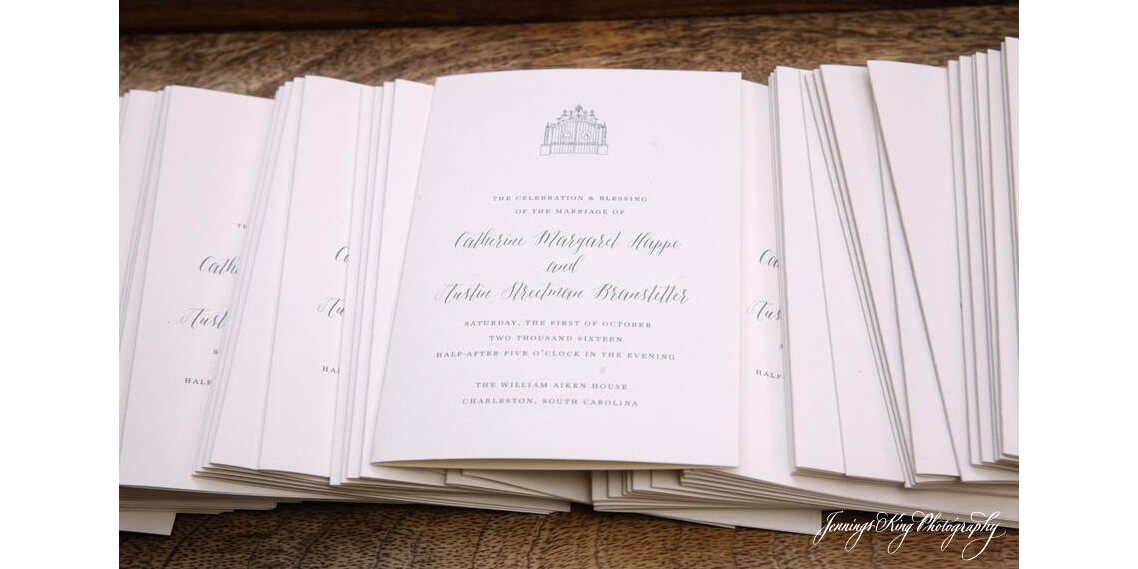 THE CELEBRATION & BLESSING
OF THE MARRIAGE OF
Catherine Margaret Happe
and
Austin Streetman Branstetter
SATURDAY, THE FIRST OF OCTOBER
TWO THOUSAND SIXTEEN
HALF-AFTER FIVE O'CLOCK IN THE EVENING
THE WILLIAM AIKEN HOUSE
CHARLESTON, SOUTH CAROLINA
Jennings King Photography